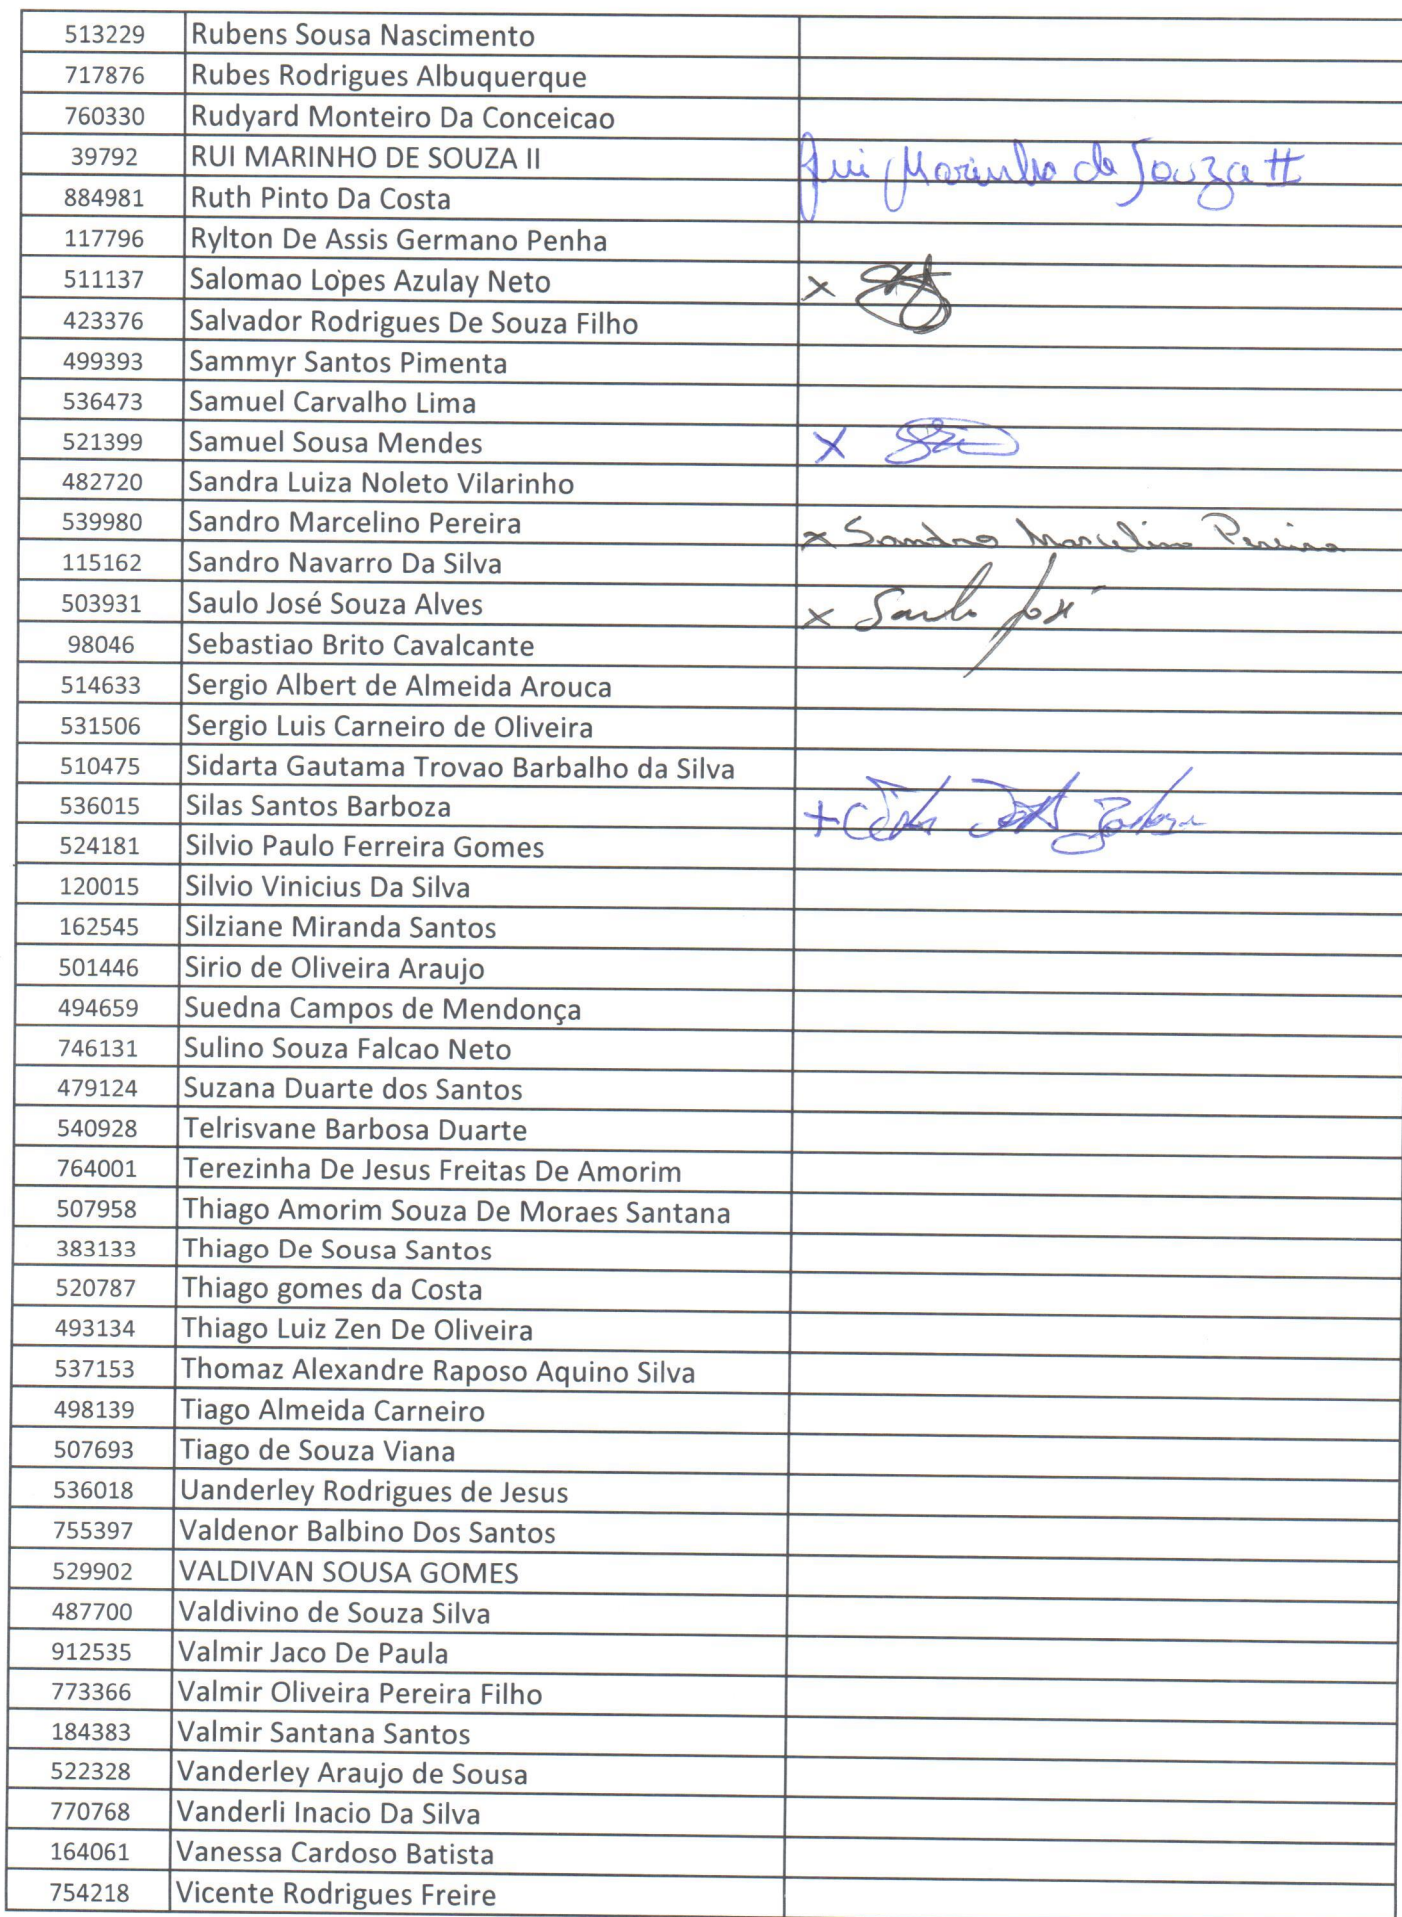 513229 Rubens Sousa Nascimento
717876 Rubes Rodrigues Albuquerque
760330 Rudyard Monteiro Da Conceicao
39792 RUI MARINHO DE SOUZA II Rui Marinho de Souza II
884981 Ruth Pinto Da Costa
117796 Rylton De Assis Germano Penha
511137 Salomao Lopes Azulay Neto x
423376 Salvador Rodrigues De Souza Filho
499393 Sammyr Santos Pimenta
536473 Samuel Carvalho Lima
521399 Samuel Sousa Mendes x
482720 Sandra Luiza Noleto Vilarinho
539980 Sandro Marcelino Pereira x Sandro Marcelino Pereira
115162 Sandro Navarro Da Silva
503931 Saulo José Souza Alves x Saulo José
98046 Sebastiao Brito Cavalcante
514633 Sergio Albert de Almeida Arouca
531506 Sergio Luis Carneiro de Oliveira
510475 Sidarta Gautama Trovao Barbalho da Silva
536015 Silas Santos Barboza +
524181 Silvio Paulo Ferreira Gomes
120015 Silvio Vinicius Da Silva
162545 Silziane Miranda Santos
501446 Sirio de Oliveira Araujo
494659 Suedna Campos de Mendonça
746131 Sulino Souza Falcao Neto
479124 Suzana Duarte dos Santos
540928 Telrisvane Barbosa Duarte
764001 Terezinha De Jesus Freitas De Amorim
507958 Thiago Amorim Souza De Moraes Santana
383133 Thiago De Sousa Santos
520787 Thiago gomes da Costa
493134 Thiago Luiz Zen De Oliveira
537153 Thomaz Alexandre Raposo Aquino Silva
498139 Tiago Almeida Carneiro
507693 Tiago de Souza Viana
536018 Uanderley Rodrigues de Jesus
755397 Valdenor Balbino Dos Santos
529902 VALDIVAN SOUSA GOMES
487700 Valdivino de Souza Silva
912535 Valmir Jaco De Paula
773366 Valmir Oliveira Pereira Filho
184383 Valmir Santana Santos
522328 Vanderley Araujo de Sousa
770768 Vanderli Inacio Da Silva
164061 Vanessa Cardoso Batista
754218 Vicente Rodrigues Freire